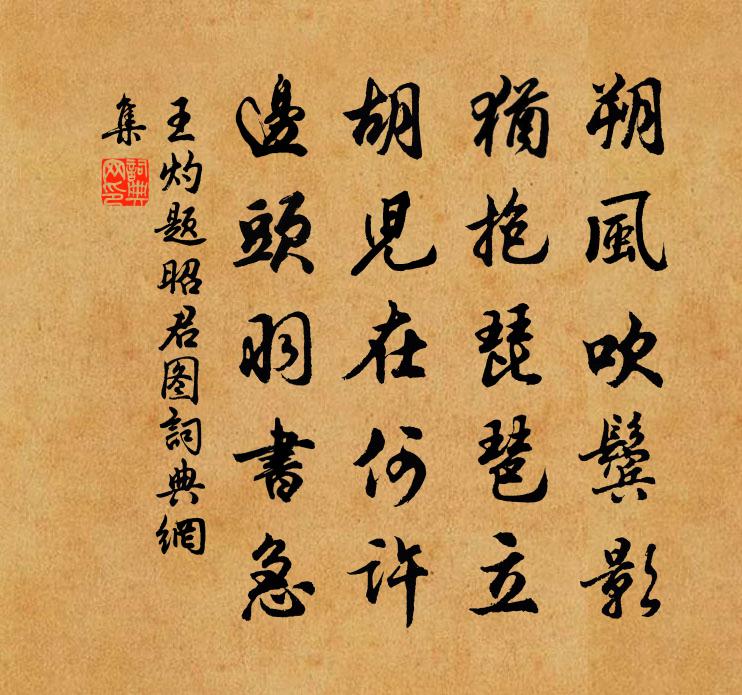 朔風吹鬓影
猶抱琵琶立
胡児在何許
邊頭羽書急
王灼题昭君图詞典網
集
詞典網印